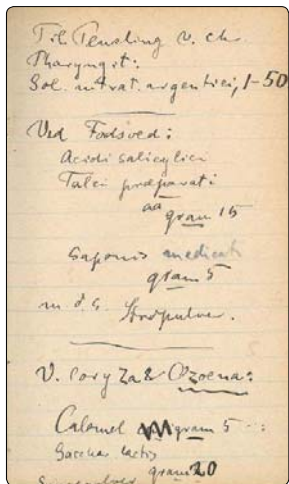 Til Pensling v. chr.
Pharyngit:
Sol. nitrat. argentici, 1-50
Ved Fodsved:
Acidi salicylici
Talci præparati
aa
gram 15
Saponis medicati
gram 5
m. d. s. Strøpulver.
V. Coryza & Ozoena:
Calomel gram 5
Sacchar lactis
gram 20